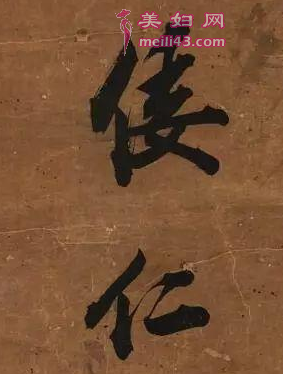 美妇网
meili43.com
倭
仁